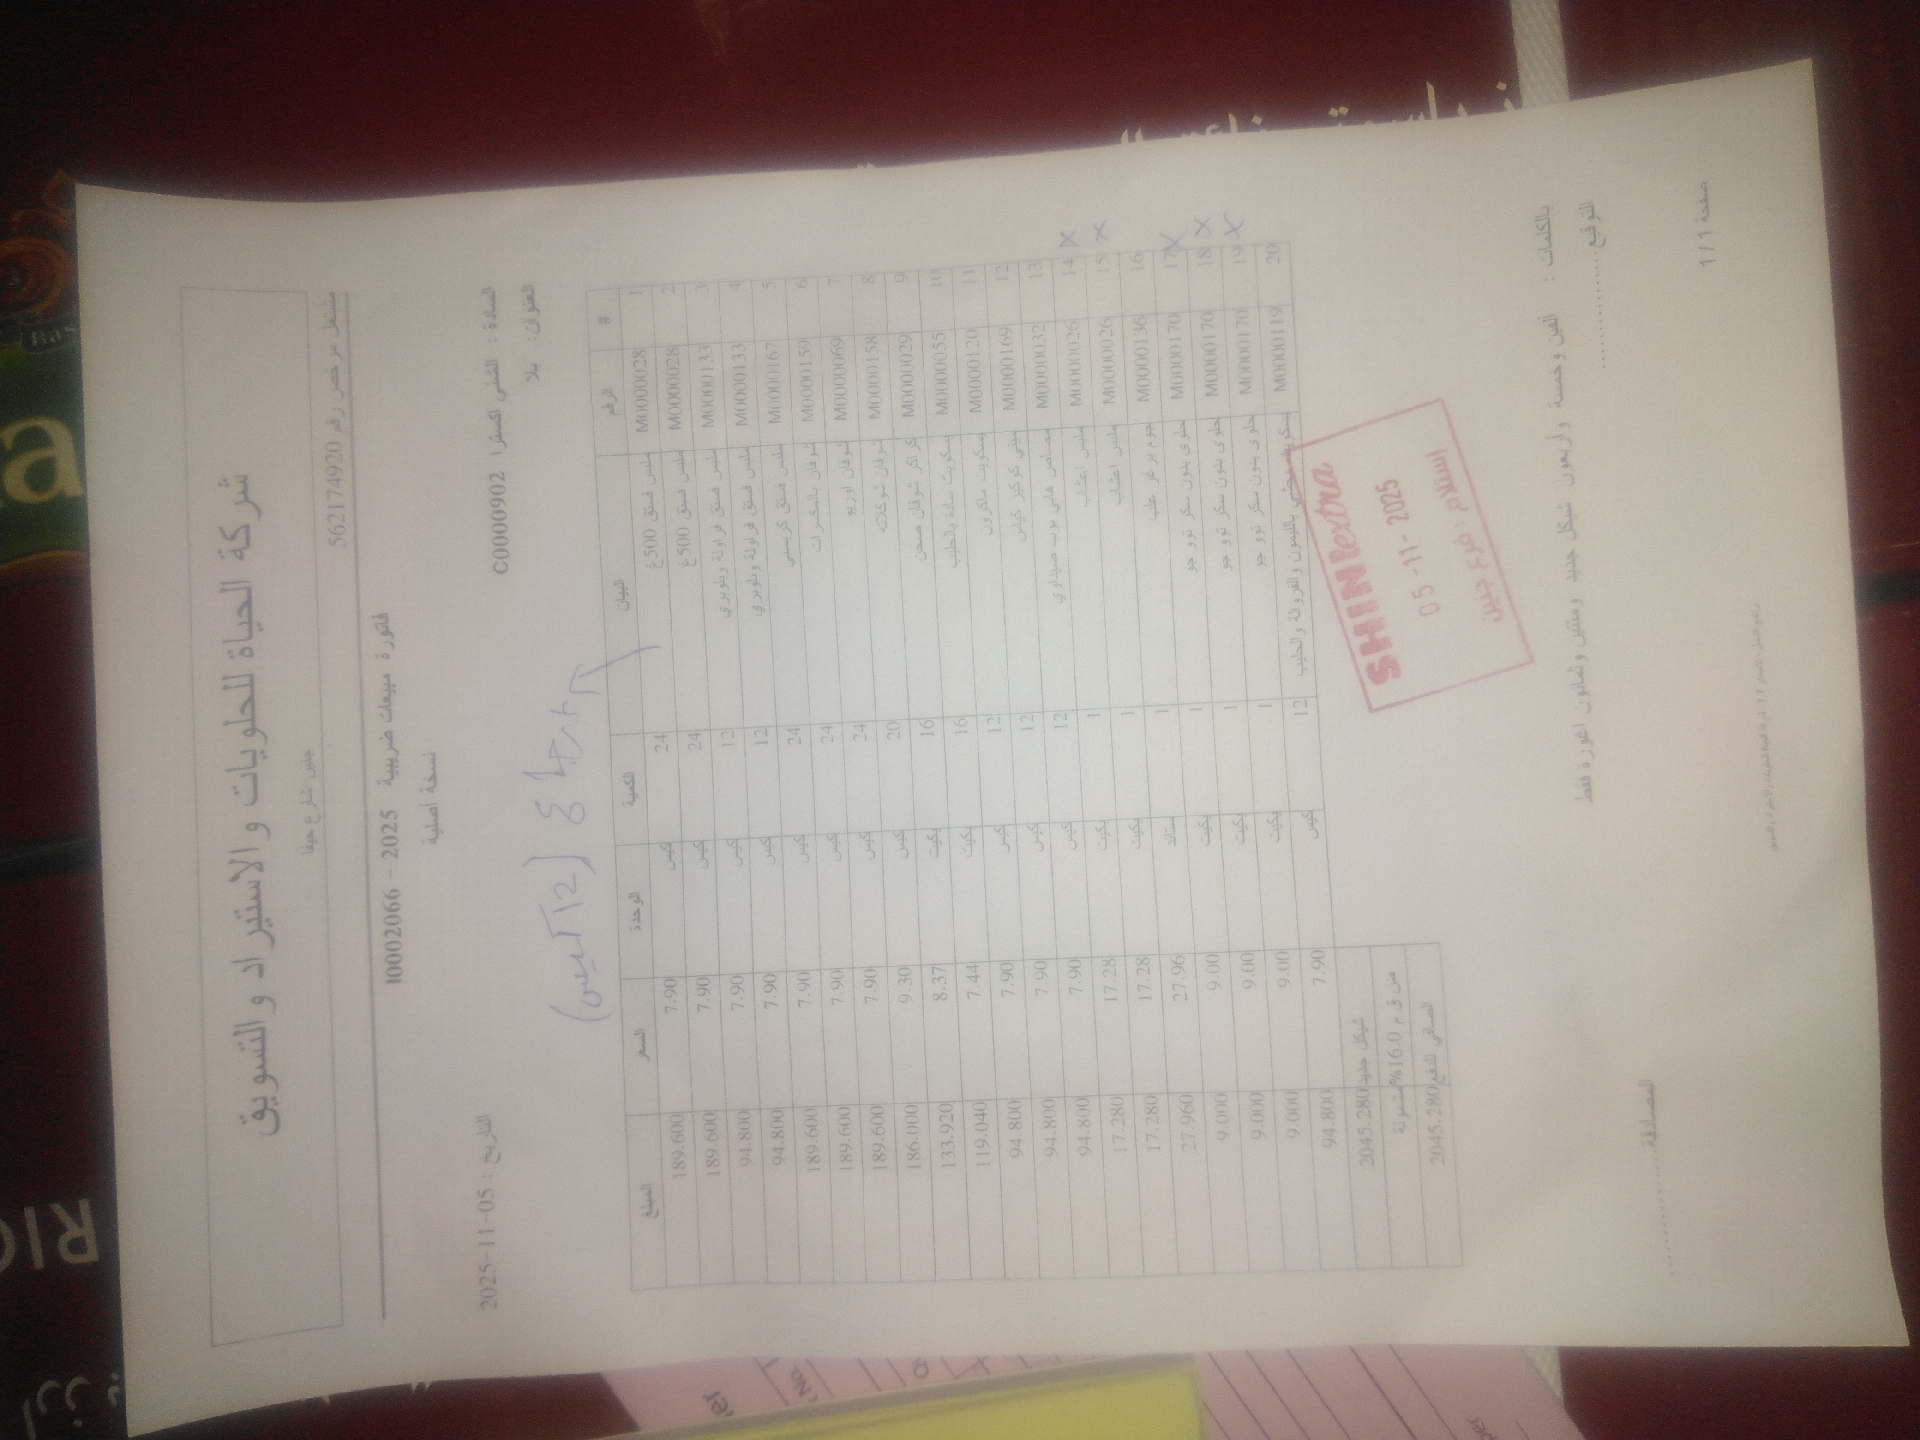 شركة الحياة للحلويات والاستيراد والتسويق
جنين شارع حيفا
مشتغل مرخص رقم 562174920
فاتورة مبيعات ضريبية 2025 - I0002066
نسخة اصلية
السادة : الشني اكسترا C0000902
التاريخ : 2025-11-05
العنوان: يلا
# الرقم البيان الكمية الوحدة السعر المبلغ
1 M0000028 ملبس فستق 500غ 24 كيس 7.90 189.600
2 M0000028 ملبس فستق 500غ 24 كيس 7.90 189.600
3 M0000133 ملبس فستق فراولة وبلوبري 12 كيس 7.90 94.800
4 M0000133 ملبس فستق فراولة وبلوبري 12 كيس 7.90 94.800
5 M0000167 ملبس فستق كريسبي 24 كيس 7.90 189.600
6 M0000159 شوفان بالمكسرات 24 كيس 7.90 189.600
7 M0000069 شوفان اوريو 24 كيس 7.90 189.600
8 M0000158 شوفان شوكلاته 20 كيس 9.30 186.000
9 M0000029 كراكر شوفان صحن 16 بكيت 8.37 133.920
10 M0000055 بسكويت سادة بالحليب 16 بكيت 7.44 119.040
11 M0000120 بسكويت ماكرون 12 كيس 7.90 94.800
12 M0000169 ميني كوكيز كيس 12 كيس 7.90 94.800
13 M0000032 مصاص هابي بوب صيداوي 12 كيس 7.90 94.800
14 M0000026 ملبس اعشاب 1 بكيت 17.28 17.280
15 M0000026 ملبس اعشاب 1 بكيت 17.28 17.280
16 M0000136 جوم برغر علب 1 ستاند 27.96 27.960
17 M0000170 حلوى بدون سكر نوو جو 1 بكيت 9.00 9.000
18 M0000170 حلوى بدون سكر نوو جو 1 بكيت 9.00 9.000
19 M0000170 حلوى بدون سكر نوو جو 1 بكيت 9.00 9.000
20 M0000119 بسكويت محشي بالليمون والفراولة والحليب 12 كيس 7.90 94.800
شيكل جديد 2045.280
ض ق م 16.0% مشمولة
الصافي للدفع 2045.280
SHINIextra
05-11-2025
استلام : فرع جنين
بالكلمات : الفين وخمسة واربعون شيكل جديد ومئتين وثمانون اغورة فقط
التوقيع
المصادقة
صفحة 1 / 1
RIC